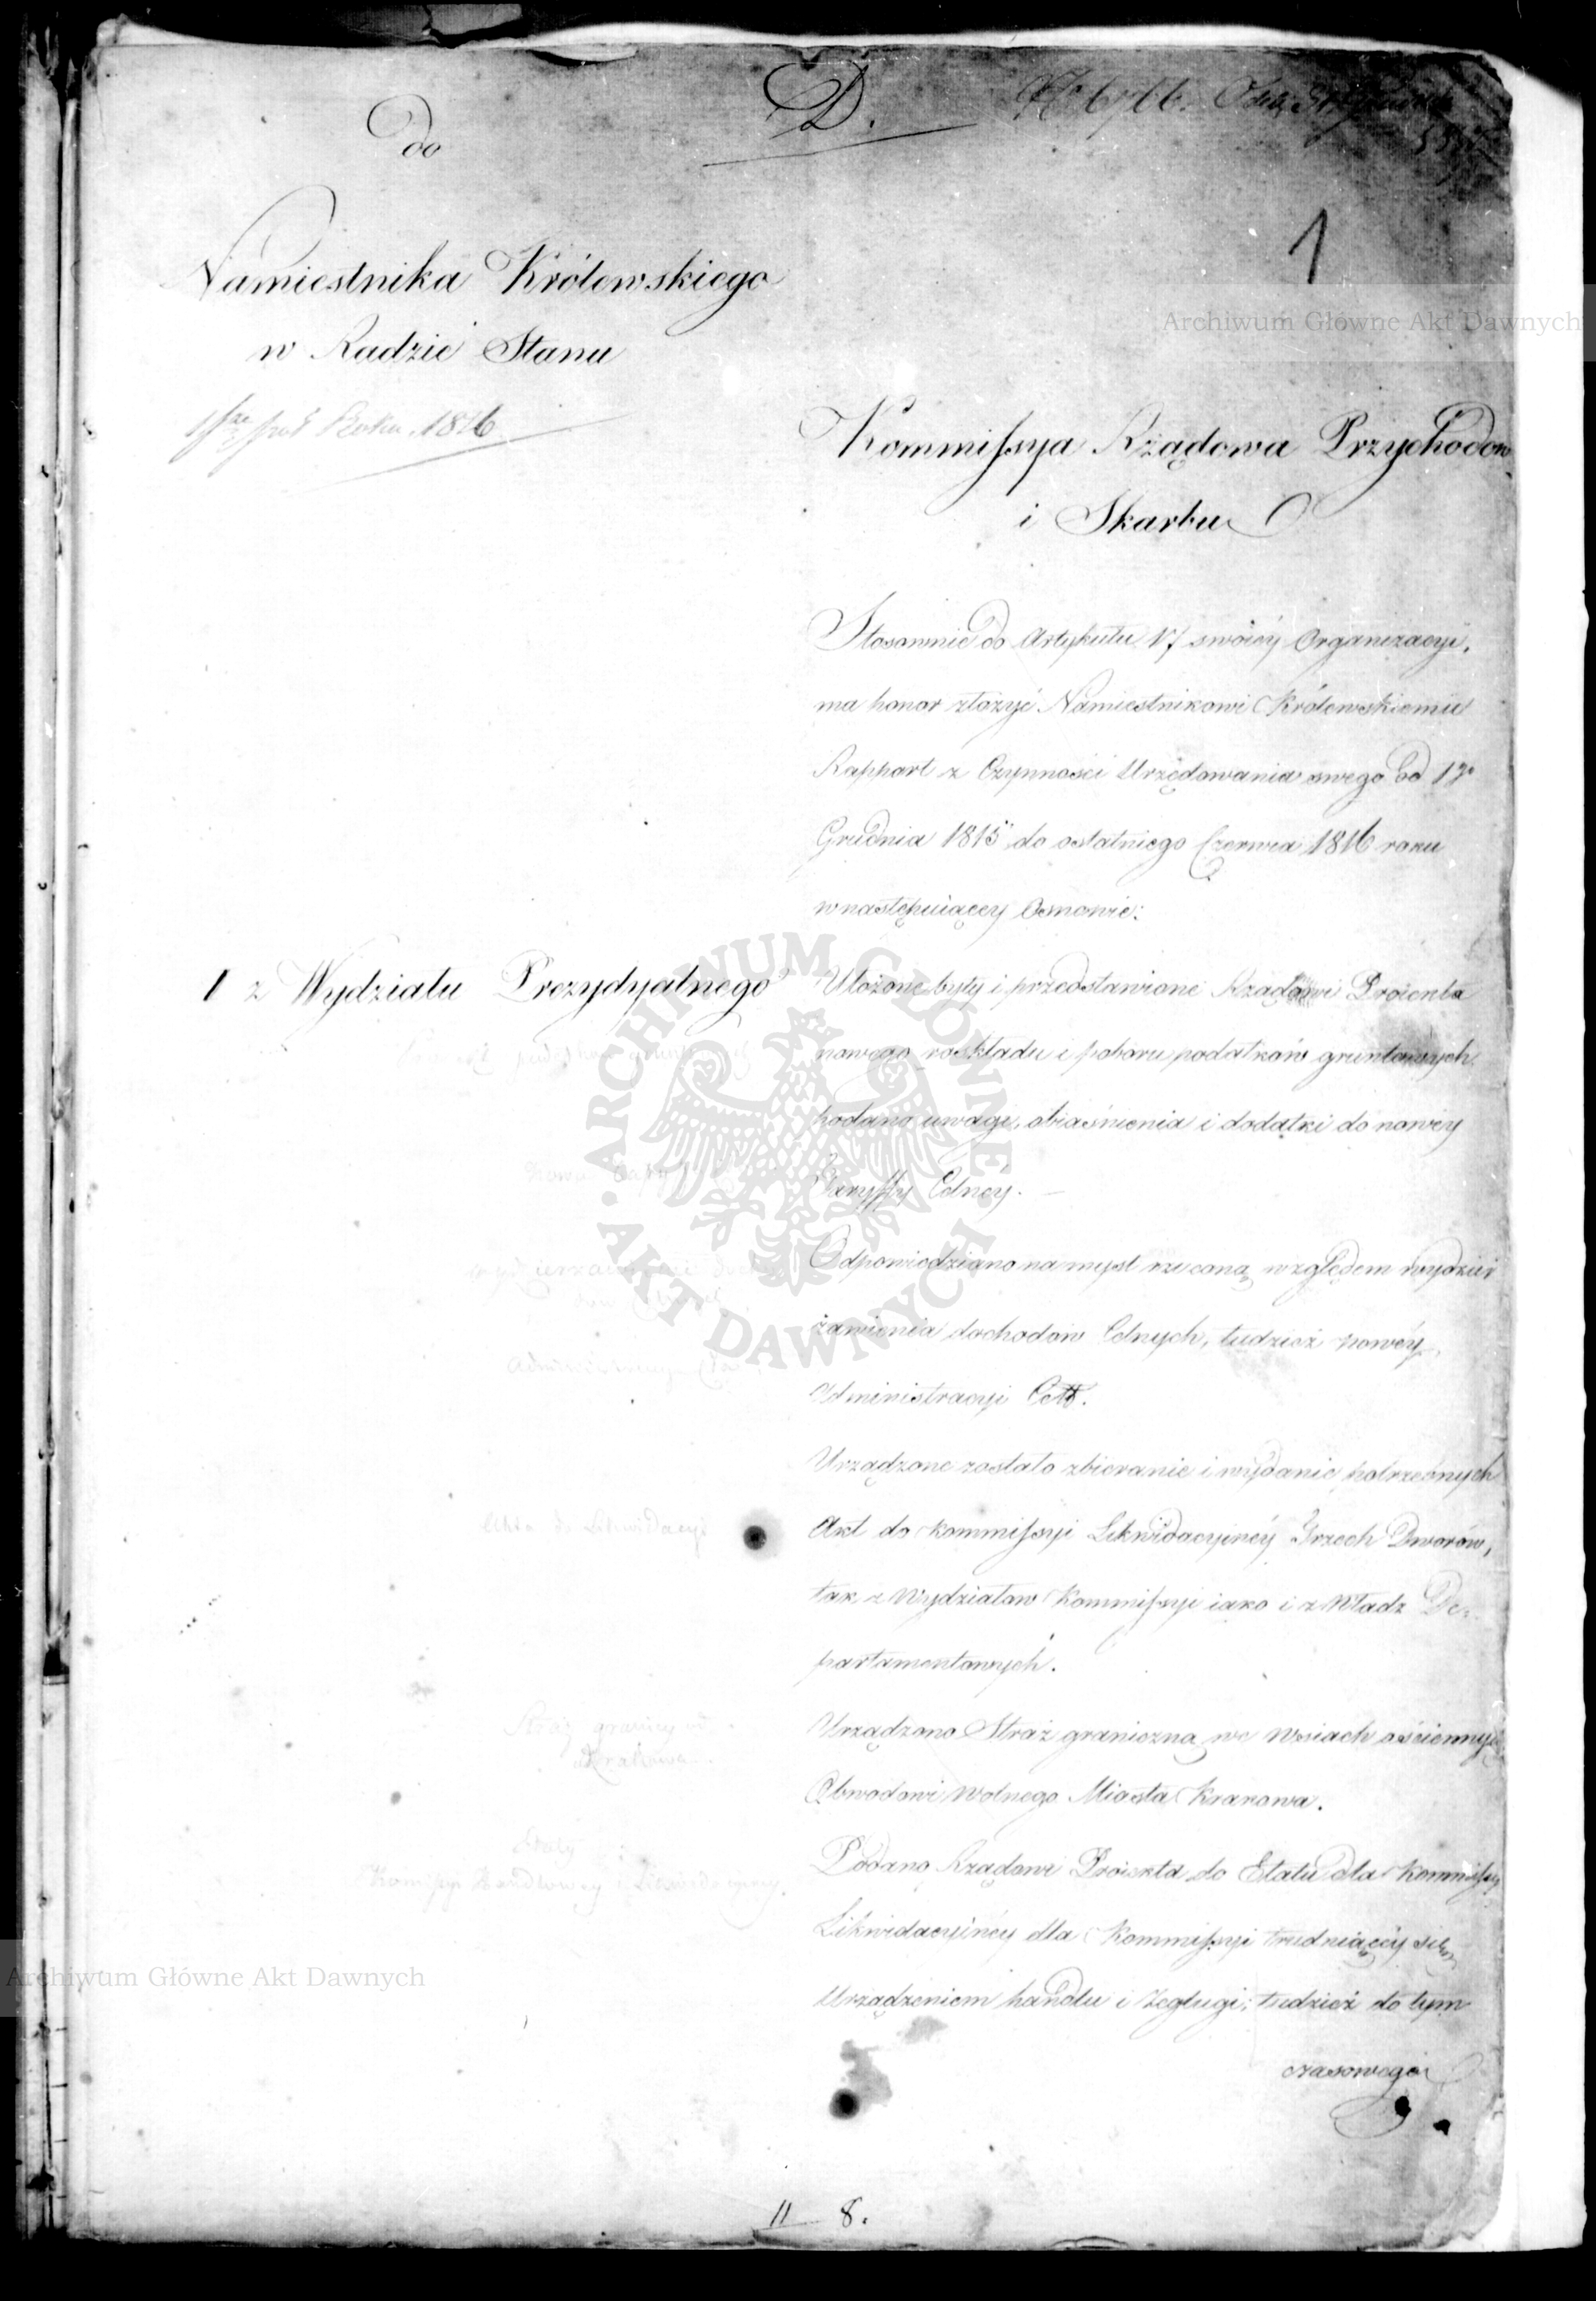 D.
do
1
Namiestnika Królewskiego
w Radzie Stanu
Roku 1816
Kommissya Rządowa Przychodow
i Skarbu
Stosownie do Artykułu 17 swoiéy Organizacyi,
ma honor złożyć Namiestnikowi Królewskiemu
Rapport z Czynności Urzędowania swego od 1go
Grudnia 1815 do ostatniego Czerwca 1816 roku
w następuiącey Osnowie:
1 z Wydziału Prezydyalnego
Ułożone były i przedstawione Rządowi Proiekta
nowego rozkładu i poboru podatków gruntowych
podano uwagi, obiaśnienia i dodatki do nowéy
Taryffy Celnéy. —
Odpowiedziano na myśl rzuconą względem wydzier
żawienia dochodów Celnych, tudzież nowéy
Administracyi Ceł.
Urządzone zostało zbieranie i wydanie potrzebnych
Akt do Kommissyi Likwidacyinéy Trzech Dworów,
Akta do Likwidacyi
tak z Wydziałow Kommissyi iako i z Władz De-
partamentowych.
Urządzono Straż graniczną we Wsiach ościennych
Straż granicy od
Krakowa
Obwodowi Wolnego Miasta Krakowa.
Podano Rządowi Proiekta do Etatu dla Kommissyi
Etaty
Likwidacyinéy dla Kommissyi trudniącéy się
Urządzeniem handlu i żeglugi; tudzież do tym
czasowego
11 8.
ARCHIWUM GŁÓWNE AKT DAWNYCH
Archiwum Główne Akt Dawnych
Archiwum Główne Akt Dawnych